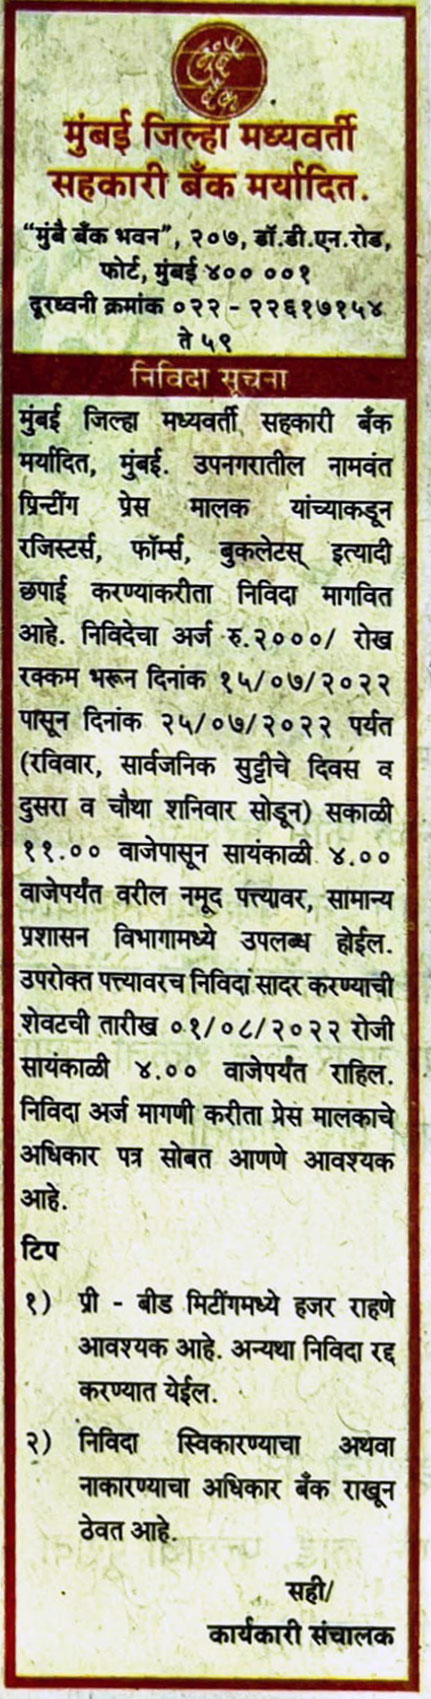 मुंबई बँक
मुंबई जिल्हा मध्यवर्ती
सहकारी बँक मर्यादित.
“मुंबै बँक भवन”, २०७, डॉ.डी.एन.रोड,
फोर्ट, मुंबई ४०० ००१
दूरध्वनी क्रमांक ०२२ - २२६१७१५४
ते ५९
निविदा सूचना
मुंबई जिल्हा मध्यवर्ती सहकारी बँक
मर्यादित, मुंबई. उपनगरातील नामवंत
प्रिन्टींग प्रेस मालक यांच्याकडून
रजिस्टर्स, फॉर्म्स, बुकलेटस् इत्यादी
छपाई करण्याकरीता निविदा मागवित
आहे. निविदेचा अर्ज रु.२०००/ रोख
रक्कम भरून दिनांक १५/०७/२०२२
पासून दिनांक २५/०७/२०२२ पर्यंत
(रविवार, सार्वजनिक सुट्टीचे दिवस व
दुसरा व चौथा शनिवार सोडून) सकाळी
११.०० वाजेपासून सायंकाळी ४.००
वाजेपर्यंत वरील नमूद पत्त्यावर, सामान्य
प्रशासन विभागामध्ये उपलब्ध होईल.
उपरोक्त पत्त्यावरच निविदा सादर करण्याची
शेवटची तारीख ०१/०८/२०२२ रोजी
सायंकाळी ४.०० वाजेपर्यंत राहिल.
निविदा अर्ज मागणी करीता प्रेस मालकाचे
अधिकार पत्र सोबत आणणे आवश्यक
आहे.
टिप
१) प्री - बीड मिटींगमध्ये हजर राहणे
आवश्यक आहे. अन्यथा निविदा रद्द
करण्यात येईल.
२) निविदा स्विकारण्याचा अथवा
नाकारण्याचा अधिकार बँक राखून
ठेवत आहे.
सही/
कार्यकारी संचालक